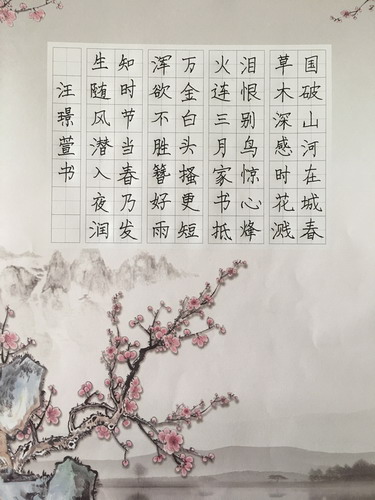 国破山河在城春
草木深感时花溅
泪恨别鸟惊心烽
火连三月家书抵
万金白头搔更短
浑欲不胜簪好雨
知时节当春乃发
生随风潜入夜润
汪璟萱书